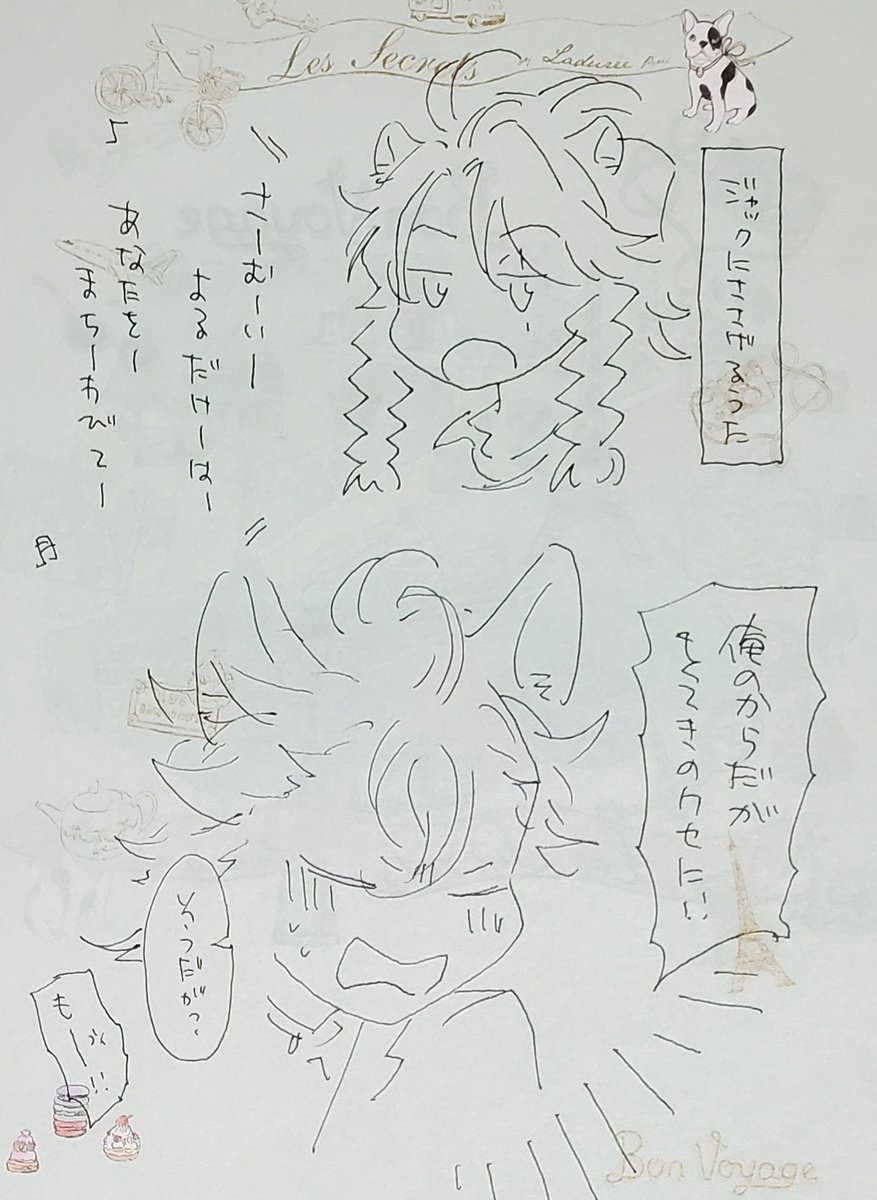 Les Secrets
Ladurée Paris
ジャックにささげるうた
さーむーいー
よるだけーはー
あなたをー
まちーわびてー
俺のからだが
もくてきのクセに!!
そうだが?
もーっ!!
Bon Voyage